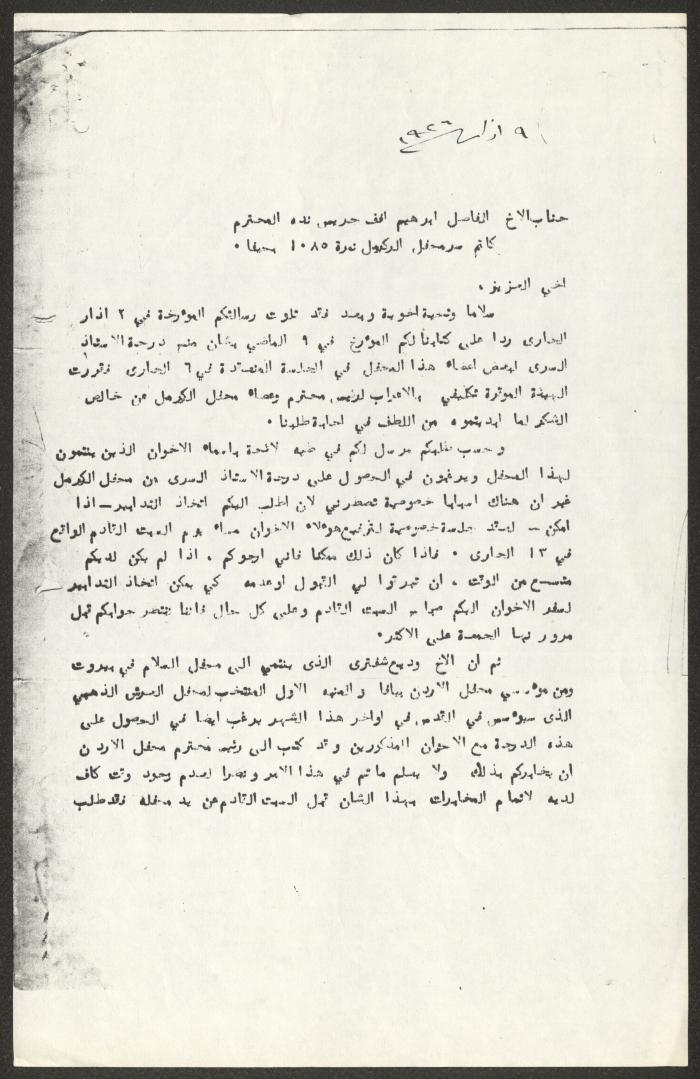 ٩ اذار ١٩٢٦
جناب الاخ الفاضل ابرهيم افف المحترم
كاتم سر محفل الكرمل نمرة ١٠٨٥ بحيفا .
اخي العزيز .
سلاما وتحية اخوية وبعد فقد تلوت رسالتكم المؤرخة في ٢ اذار
الجاري ردا على كتابنا لكم المؤرخ في ٩ الماضي بشأن منح درجة الاستاذ
السري لبعض اعضاء هذا المحفل في الجلسة المنعقدة في ٦ الجاري فقررت
الهيئة الموقرة تكليفي بالاعراب لرئيس محترم وعضاء محفل الكرمل عن خالص
الشكر لما ابديتموه من اللطف في اجابة طلبنا .
وحسب طلبكم مرسل لكم في طيه لائحة باسماء الاخوان الذين ينتمون
لهذا المحفل ويرغبون في الحصول على درجة الاستاذ السري من محفل الكرمل
غير ان هناك اسبابا خصوصية تضطرني لان اطلب اليكم اتخاذ التدابير - اذا
امكن - لعقد جلسة خصوصية لترفيع هؤلاء الاخوان مساء يوم السبت القادم الواقع
في ١٣ الجاري . فاذا كان ذلك ممكنا فاني ارجوكم ، اذا لم يكن لديكم
متسع من الوقت ، ان تبرقوا لي القبول او عدمه كي يمكن اتخاذ التدابير
لسفر الاخوان اليكم صباح السبت القادم وعلى كل حال فاننا ننتضر جوابكم قبل
مرور نهار الجمعة على الاكثر .
ثم ان الاخ وديع شفتري الذي ينتمي الى محفل السلام في بيروت
ومن مؤسسي محفل الاردن بيافا والمنبه الاول المنتخب لمحفل العرش الذهبي
الذي سيؤسس في القدس في اواخر هذا الشهر يرغب ايضا في الحصول على
هذه الدرجة مع الاخوان المذكورين وقد كتب الى رئيس محترم محفل الاردن
ان يخابركم بذلك ولا يعلم ما تم في هذا الامر ونضرا لعدم وجود وقت كاف
لديه لاتمام المخابرات بهذا الشان قبل السبت القادم عن يد محفله فقد طلب